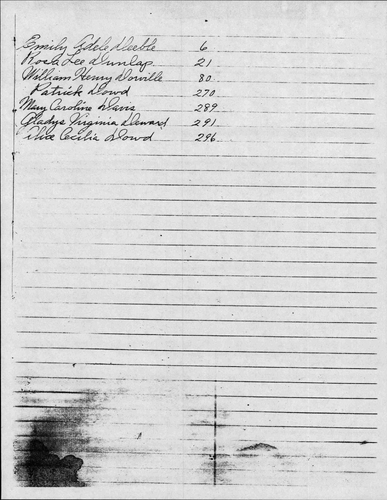 Emily Adele Deeble 6
Rosa Lee Dunlap 21
William Henry Dorville 80
Patrick Dowd 270
Mary Caroline Davis 289
Gladys Virginia Deward 291
Alice Cecilia Dowd 296